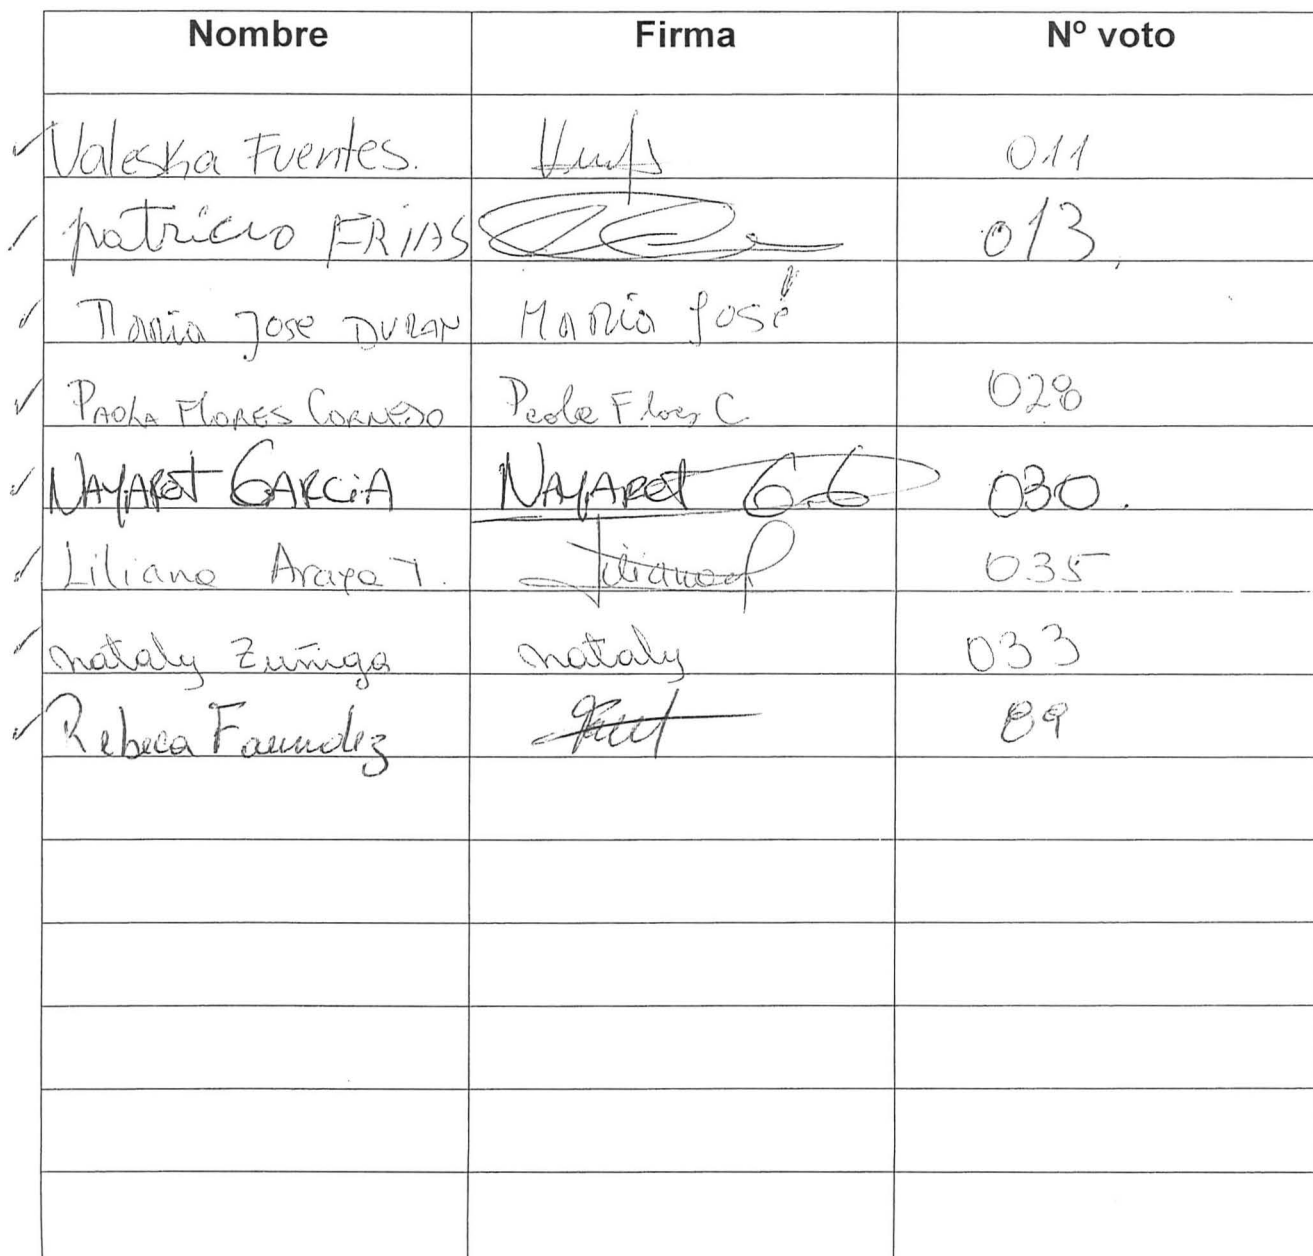 Nombre Firma Nº voto
Valeska Fuentes. 011
patricio FRIAS 013
Maria Jose DURAN Maria José
PAOLA FLORES CORNEJO Paola Flores C 028
NAYARET GARCIA NAYARET G.G 030.
Liliana Araya T. Liliana 035
nataly Zuñiga nataly 033
Rebeca Faundez 89